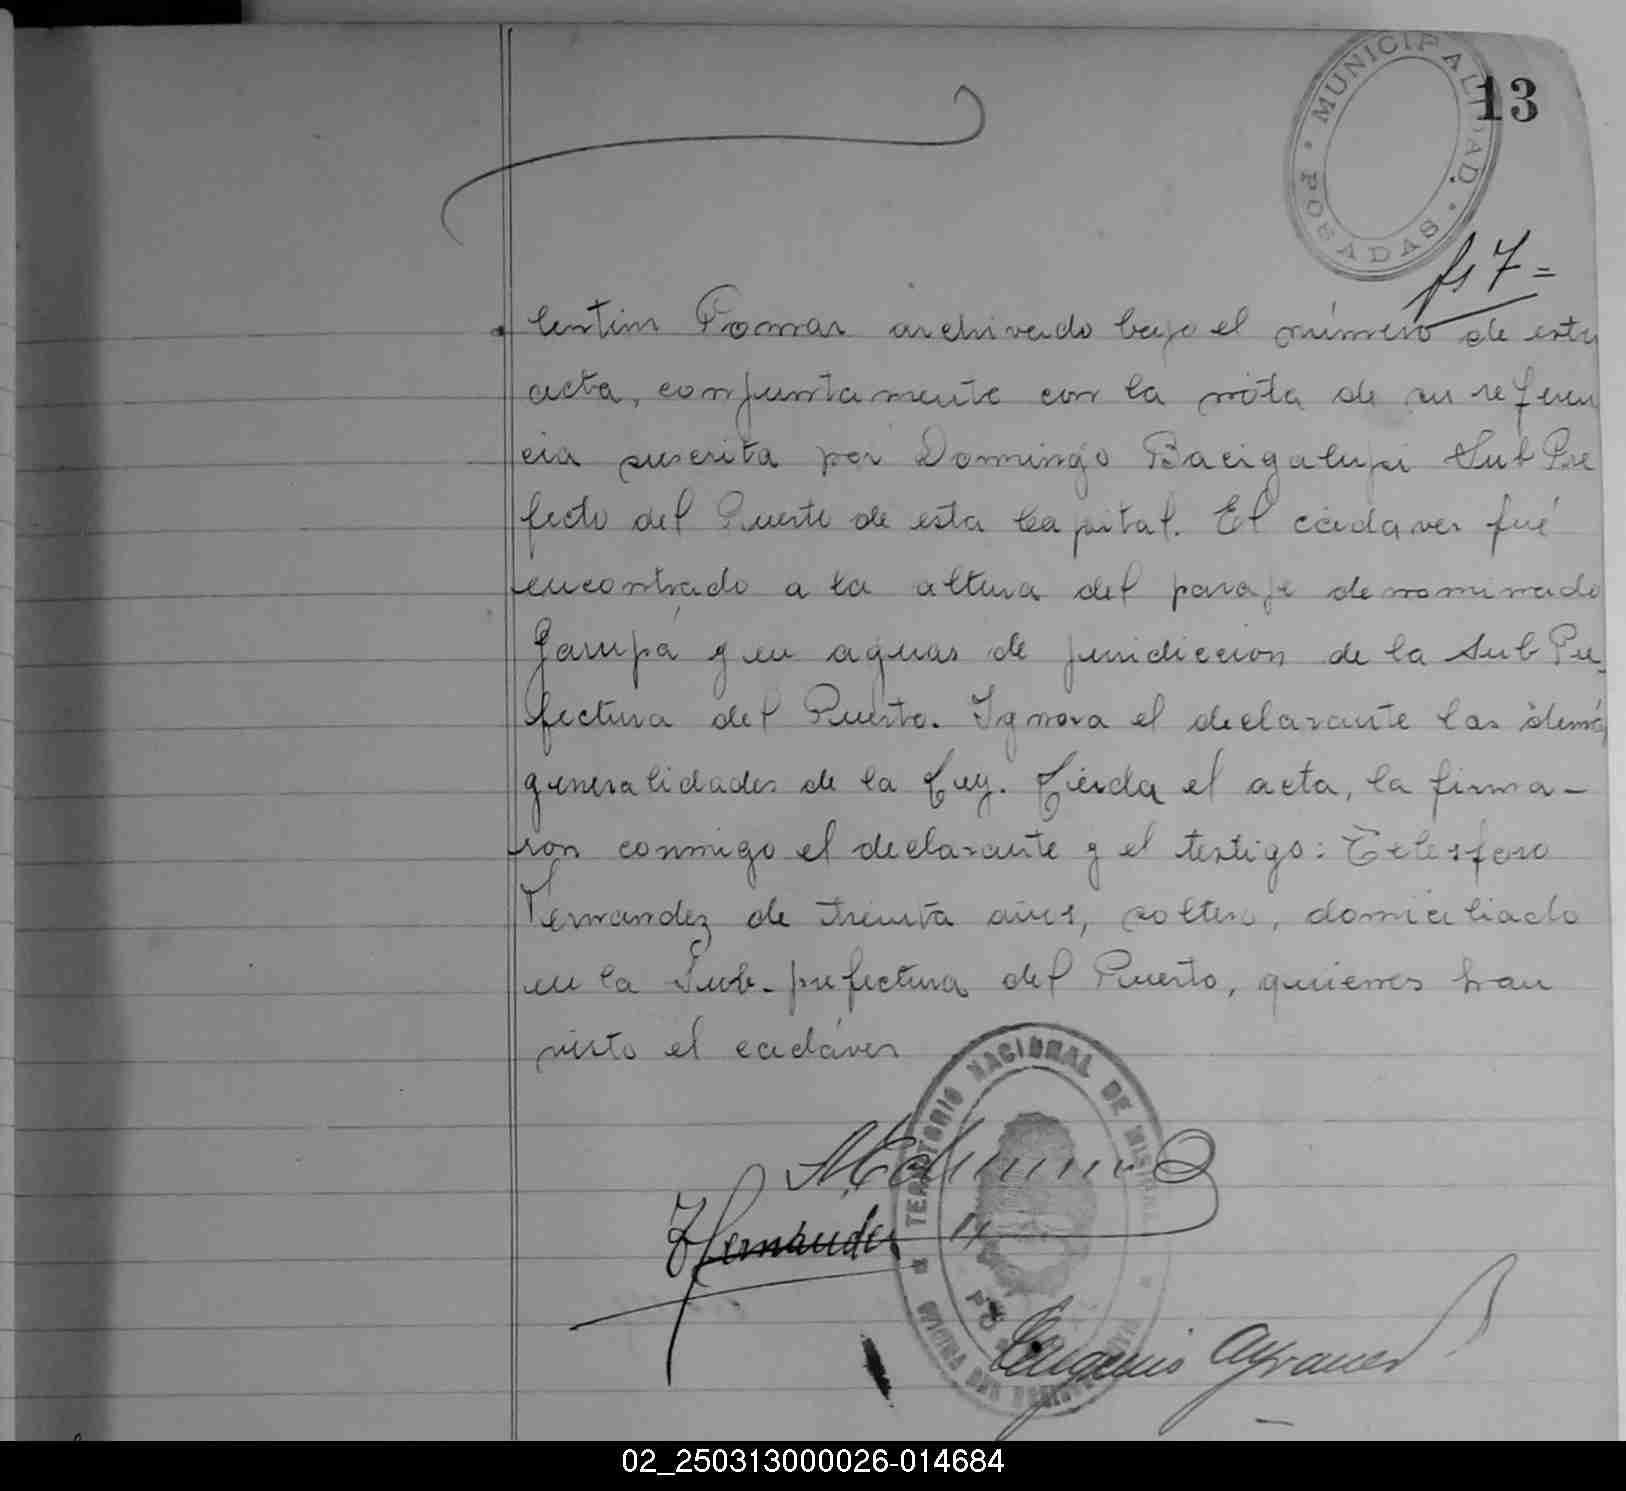 MUNICIPALIDAD
· POSADAS ·
13
fs 7=
lentin Pomar archivado bajo el número de esta
acta, conjuntamente con la nota de su referen
cia suscrita por Domingo Bacigalupi Sub Pre
fecto del Puerto de esta Capital. El cadaver fué
encontrado a la altura del paraje denominado
Garupá y en aguas de juridiccion de la Sub Pre-
fectura del Puerto. Ignora el declarante las demá
generalidades de la Ley. Leida el acta, la firma-
ron conmigo el declarante y el testigo: Telesforo
Fernandez de treinta años, soltero, domiciliado
en la Sub-prefectura del Puerto, quienes han
visto el cadáver
TERRITORIO NACIONAL DE MISIONES
OFICINA DEL REGISTRO CIVIL
Fernandez
Eugenio
02_250313000026-014684